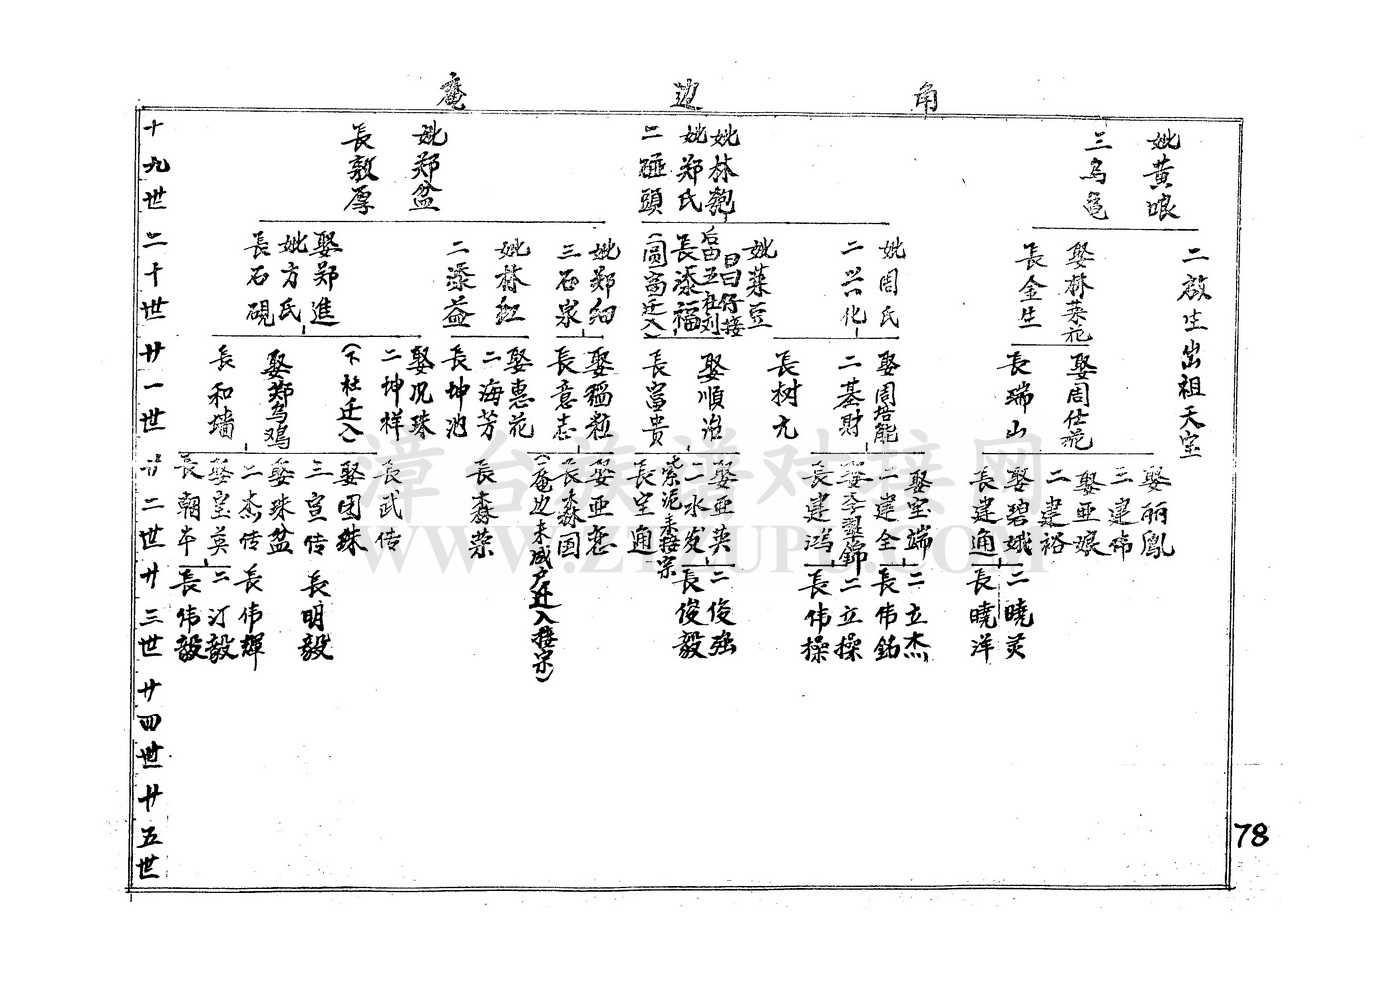 庵边角
十九世
妣郑盆
長敦厚
妣林匏
妣郑氏
二碰頭
妣黄娘
三乌龟
二十世
娶郑進
妣方氏
長石硯
妣林红
二添益
妣郑细
三石泉
妣菜豆
長添福
(圆高迁入)
妣周氏
二兴化
娶林菜花
長金生
二啟生出祖天宝
廿一世
長和墙
娶郑乌鸡
(下社迁入)
二坤祥
娶况珠
長坤池
二海芳
娶惠花
長意志
娶稲粒
長富贵
娶順治
長树亢
二基財
娶周培能
長瑞山
娶周仕琬
廿二世
長朝丰
娶皇莫
二杰传
娶珠盆
三宣传
娶团珠
長武传
長森荣
(二庵边来咸户迁入接宗)
長森国
娶亚恋
長宝通
紫泥来接宗
二水发
娶亚英
長建鸿
娶李翠錦
二建全
娶宝端
長建通
娶碧娥
二建裕
娶亚娘
三建伟
娶丽鳳
廿三世
長伟毅
二汀毅
長伟輝
長明毅
長俊毅
二俊强
長伟操
二立操
長伟銘
二立杰
長曉洋
二曉英
廿四世
廿五世
78
漳台族谱对接网
WWW.ZTZUPU.COM